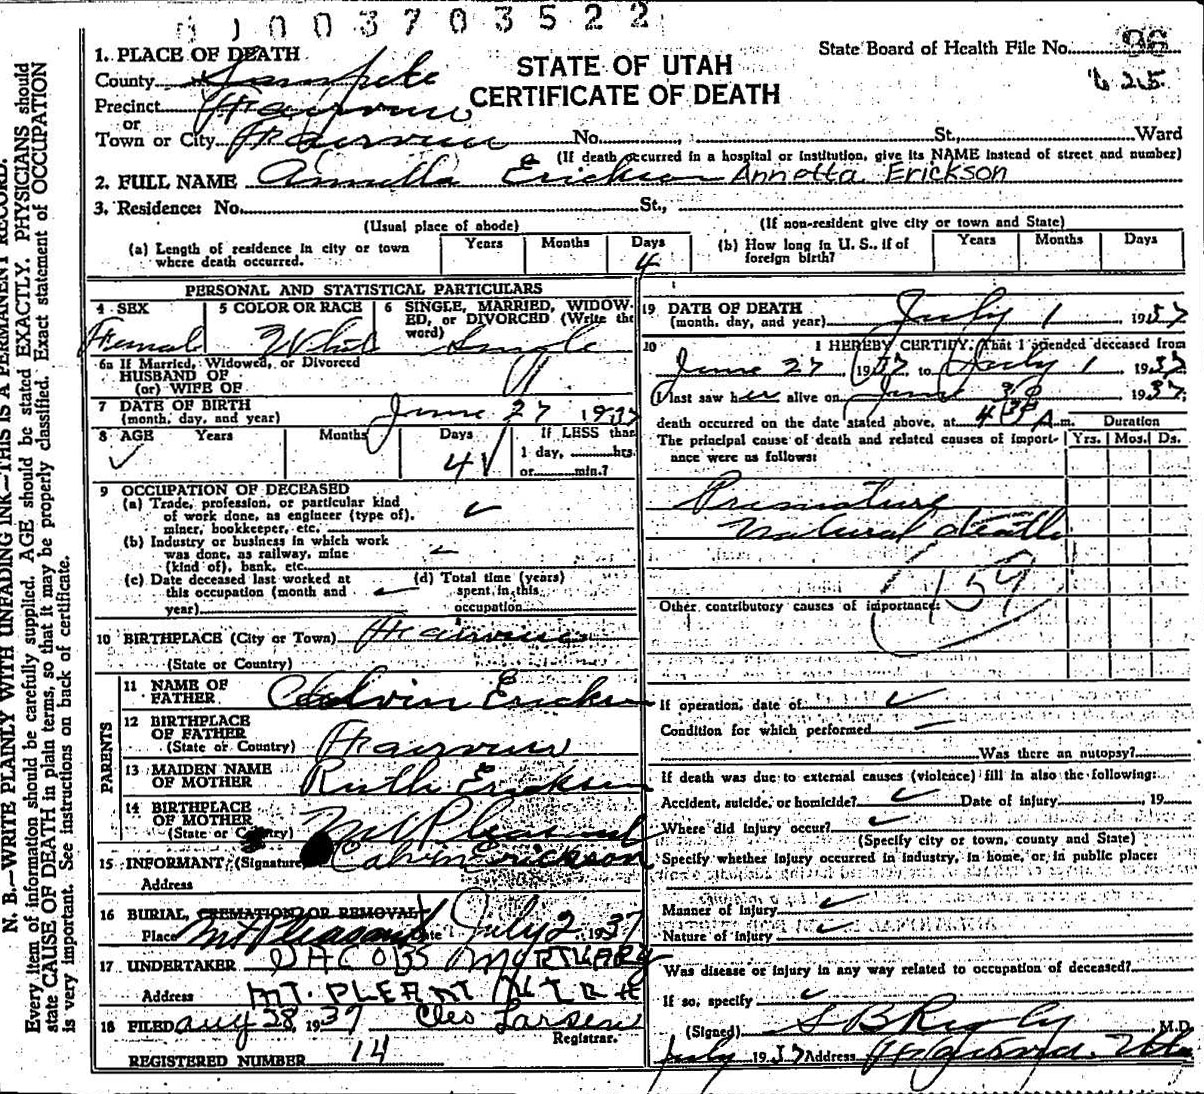 1003703522
State Board of Health File No. 96
625
STATE OF UTAH
CERTIFICATE OF DEATH
1. PLACE OF DEATH
County Sanpete
Precinct Fairview
or
Town or City Fairview No. St., Ward
(If death occurred in a hospital or institution, give its NAME instead of street and number)
2. FULL NAME Annetta Erickson Annetta Erickson
3. Residence: No. St.,
(Usual place of abode) (If non-resident give city or town and State)
(a) Length of residence in city or town where death occurred. Years Months Days 4
(b) How long in U. S., if of foreign birth? Years Months Days
PERSONAL AND STATISTICAL PARTICULARS
4 SEX Female
5 COLOR OR RACE White
6 SINGLE, MARRIED, WIDOWED, or DIVORCED (Write the word) Single
6a If Married, Widowed, or Divorced
HUSBAND OF
(or) WIFE OF
7 DATE OF BIRTH
(month, day, and year) June 27 1937
8 AGE Years Months Days 4 If LESS than
1 day, hrs.
or min.?
9 OCCUPATION OF DECEASED
(a) Trade, profession, or particular kind
of work done, as engineer (type of),
miner, bookkeeper, etc.
(b) Industry or business in which work
was done, as railway, mine
(kind of), bank, etc.
(c) Date deceased last worked at
this occupation (month and
year)
(d) Total time (years)
spent in this
occupation
10 BIRTHPLACE (City or Town) Fairview
(State or Country)
PARENTS
11 NAME OF
FATHER Calvin Erickson
12 BIRTHPLACE
OF FATHER
(State or Country) Fairview
13 MAIDEN NAME
OF MOTHER Ruth Erickson
14 BIRTHPLACE
OF MOTHER
(State or Country) Mt Pleasant
15 INFORMANT (Signature) Calvin Erickson
Address
16 BURIAL, CREMATION OR REMOVAL
Place Mt Pleasant Date July 2 1937
17 UNDERTAKER JACOBS MORTUARY
Address MT. PLEANT UTAH
18 FILED Aug 28 1937 Cleo Larsen
Registrar.
REGISTERED NUMBER 14
19 DATE OF DEATH
(month, day, and year) July 1 1937
20 I HEREBY CERTIFY, That I attended deceased from
June 27 1937 to July 1 1937
I last saw her alive on June 30 1937,
death occurred on the date stated above, at 4 30 A. m.
The principal cause of death and related causes of importance were as follows:
Duration
Yrs. Mos. Ds.
Premature
Natural death
159
Other contributory causes of importance:
If operation, date of
Condition for which performed
Was there an autopsy?
If death was due to external causes (violence) fill in also the following:
Accident, suicide, or homicide? Date of injury , 19
Where did injury occur?
(Specify city or town, county and State)
Specify whether injury occurred in industry, in home, or in public place:
Manner of injury
Nature of injury
Was disease or injury in any way related to occupation of deceased?
If so, specify
(Signed) S B Rigby M.D.
July 1937 Address Fairview, Utah
N. B.—WRITE PLAINLY WITH UNFADING INK—THIS IS A PERMANENT RECORD.
Every item of information should be carefully supplied. AGE should be stated EXACTLY. PHYSICIANS should
state CAUSE OF DEATH in plain terms, so that it may be properly classified. Exact statement of OCCUPATION
is very important. See instructions on back of certificate.